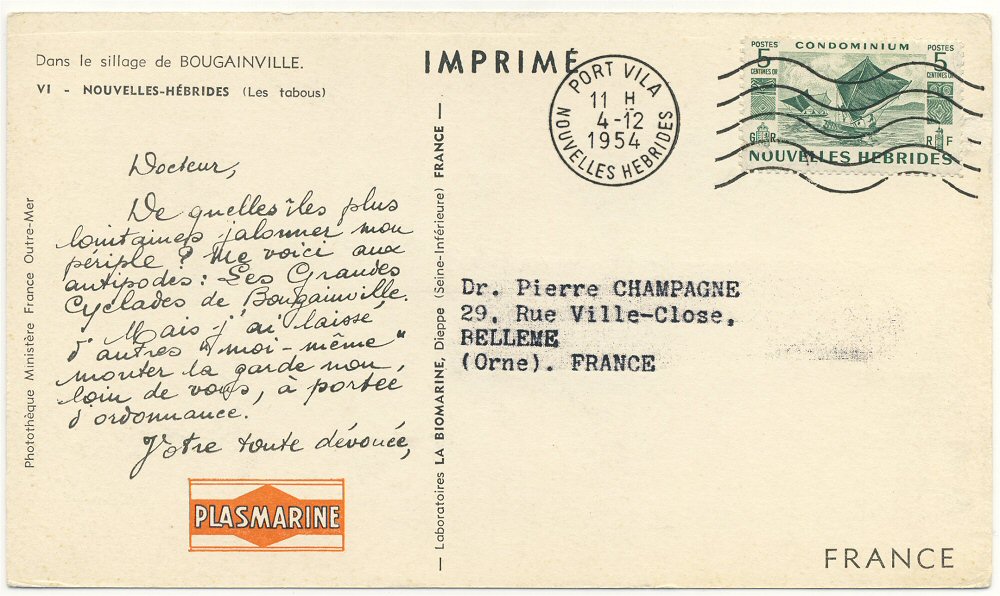 Dans le sillage de BOUGAINVILLE.
VI - NOUVELLES-HÉBRIDES (Les tabous)
Docteur,
De quelles îles plus
lointaines jalonner mon
périple ? Me voici aux
antipodes : Les Grandes
Cyclades de Bougainville.
Mais j'ai laissé
d'autres "moi-même"
monter la garde non
loin de vous, à portée
d'ordonnance.
Votre toute dévouée,
PLASMARINE
Photothèque Ministère France Outre-Mer
— Laboratoires LA BIOMARINE, Dieppe (Seine-Inférieure) FRANCE —
IMPRIMÉ
PORT VILA
11 H
4-12
1954
NOUVELLES HEBRIDES
POSTES CONDOMINIUM POSTES
5 5
CENTIMES OR CENTIMES OR
G R R F
NOUVELLES HEBRIDES
Dr. Pierre CHAMPAGNE
29, Rue Ville-Close,
BELLEME
(Orne). FRANCE
FRANCE